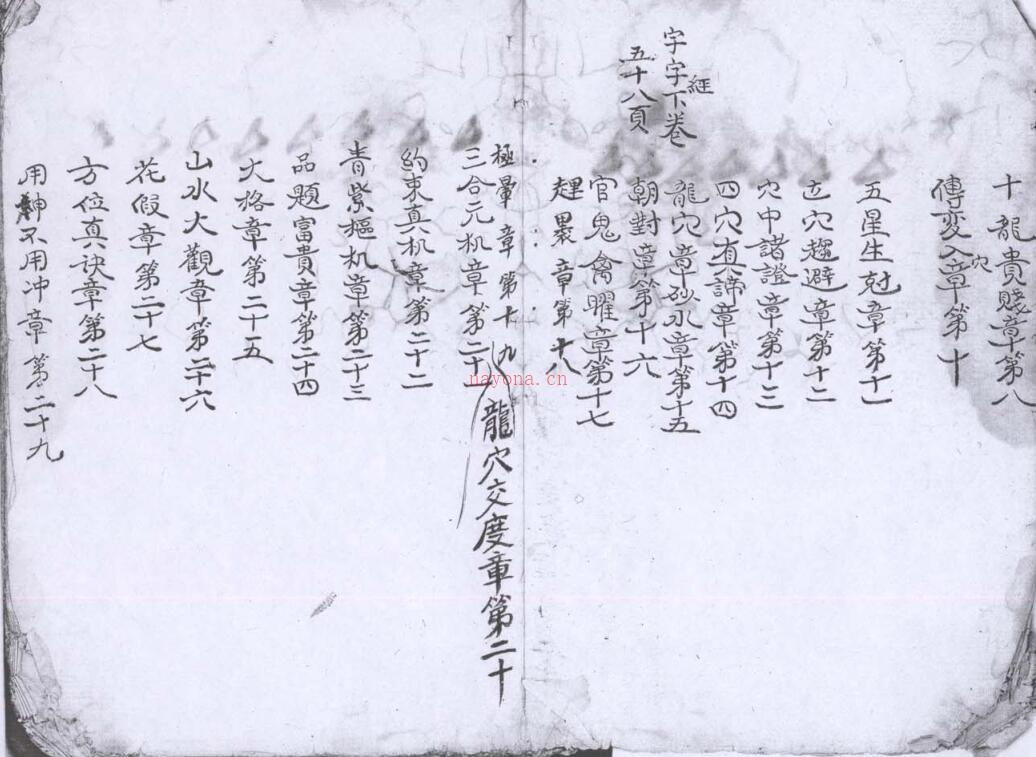 十龍貴賤章第八
傳变入穴章第十
五星生尅章第十一
立穴趨避章第十二
穴中諸證章第十三
四穴有諦章第十四
龍穴章砂水章第十五
朝對章第十六
官鬼禽曜章第十七
字字経下卷
五十八頁
裀褁章第十八
極暈章第十九
龍穴交度章第二十
三合元机章第二十一
約束真机章第二十二
青紫樞机章第二十三
品題富貴章第二十四
大格章第二十五
山水大觀章第二十六
花假章第二十七
方位真诀章第二十八
用神不用冲章第二十九
nayona.cn